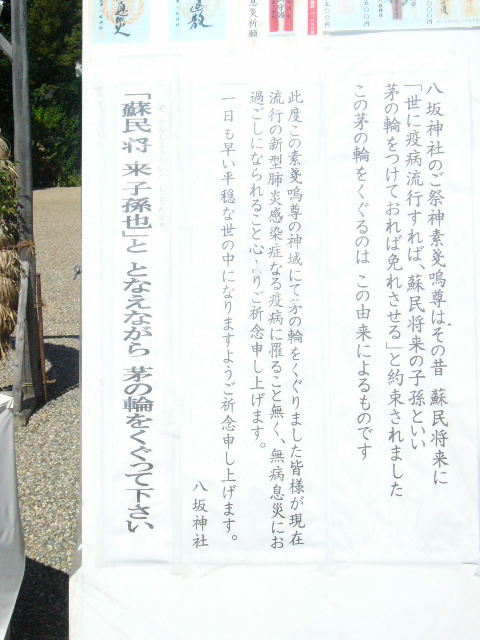 八坂神社のご祭神素戔嗚尊はその昔 蘇民将来に
「世に疫病流行すれば、蘇民将来の子孫といい
茅の輪をつけておれば免れさせる」と約束されました
この茅の輪をくぐるのは この由来によるものです
此度この素戔嗚尊の神域にて茅の輪をくぐりました皆様が現在
流行の新型肺炎感染症なる疫病に罹ること無く、無病息災にお
過ごしになられること心よりご祈念申し上げます。
一日も早い平穏な世の中になりますようご祈念申し上げます。
八坂神社
「蘇民将来子孫也」と となえながら 茅の輪をくぐって下さい
息災祈願